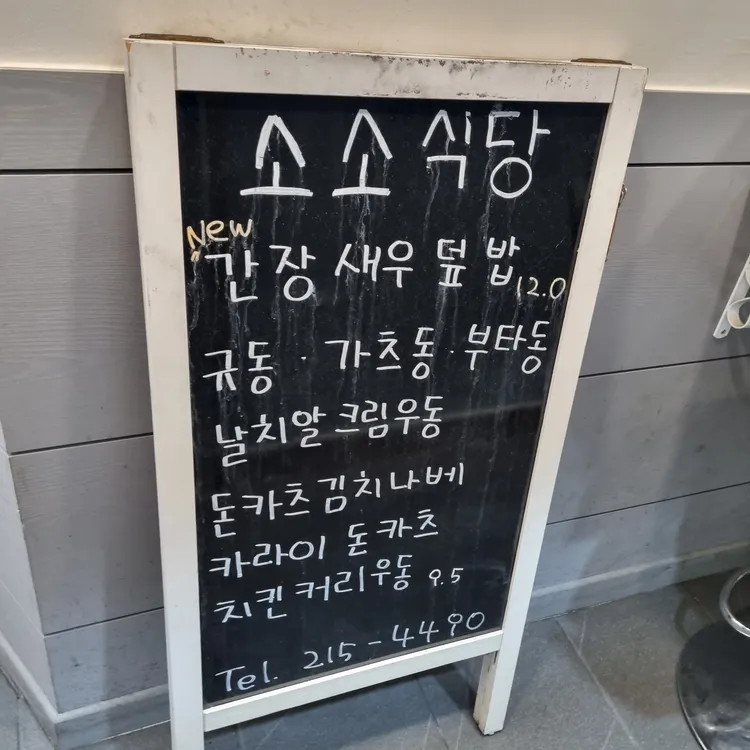 소소식당
New
간장 새우 덮밥 12.0
규동 · 가츠동 · 부타동
날치알 크림우동
돈카츠김치나베
카라이 돈카츠
치킨커리우동 9.5
Tel. 215-4490